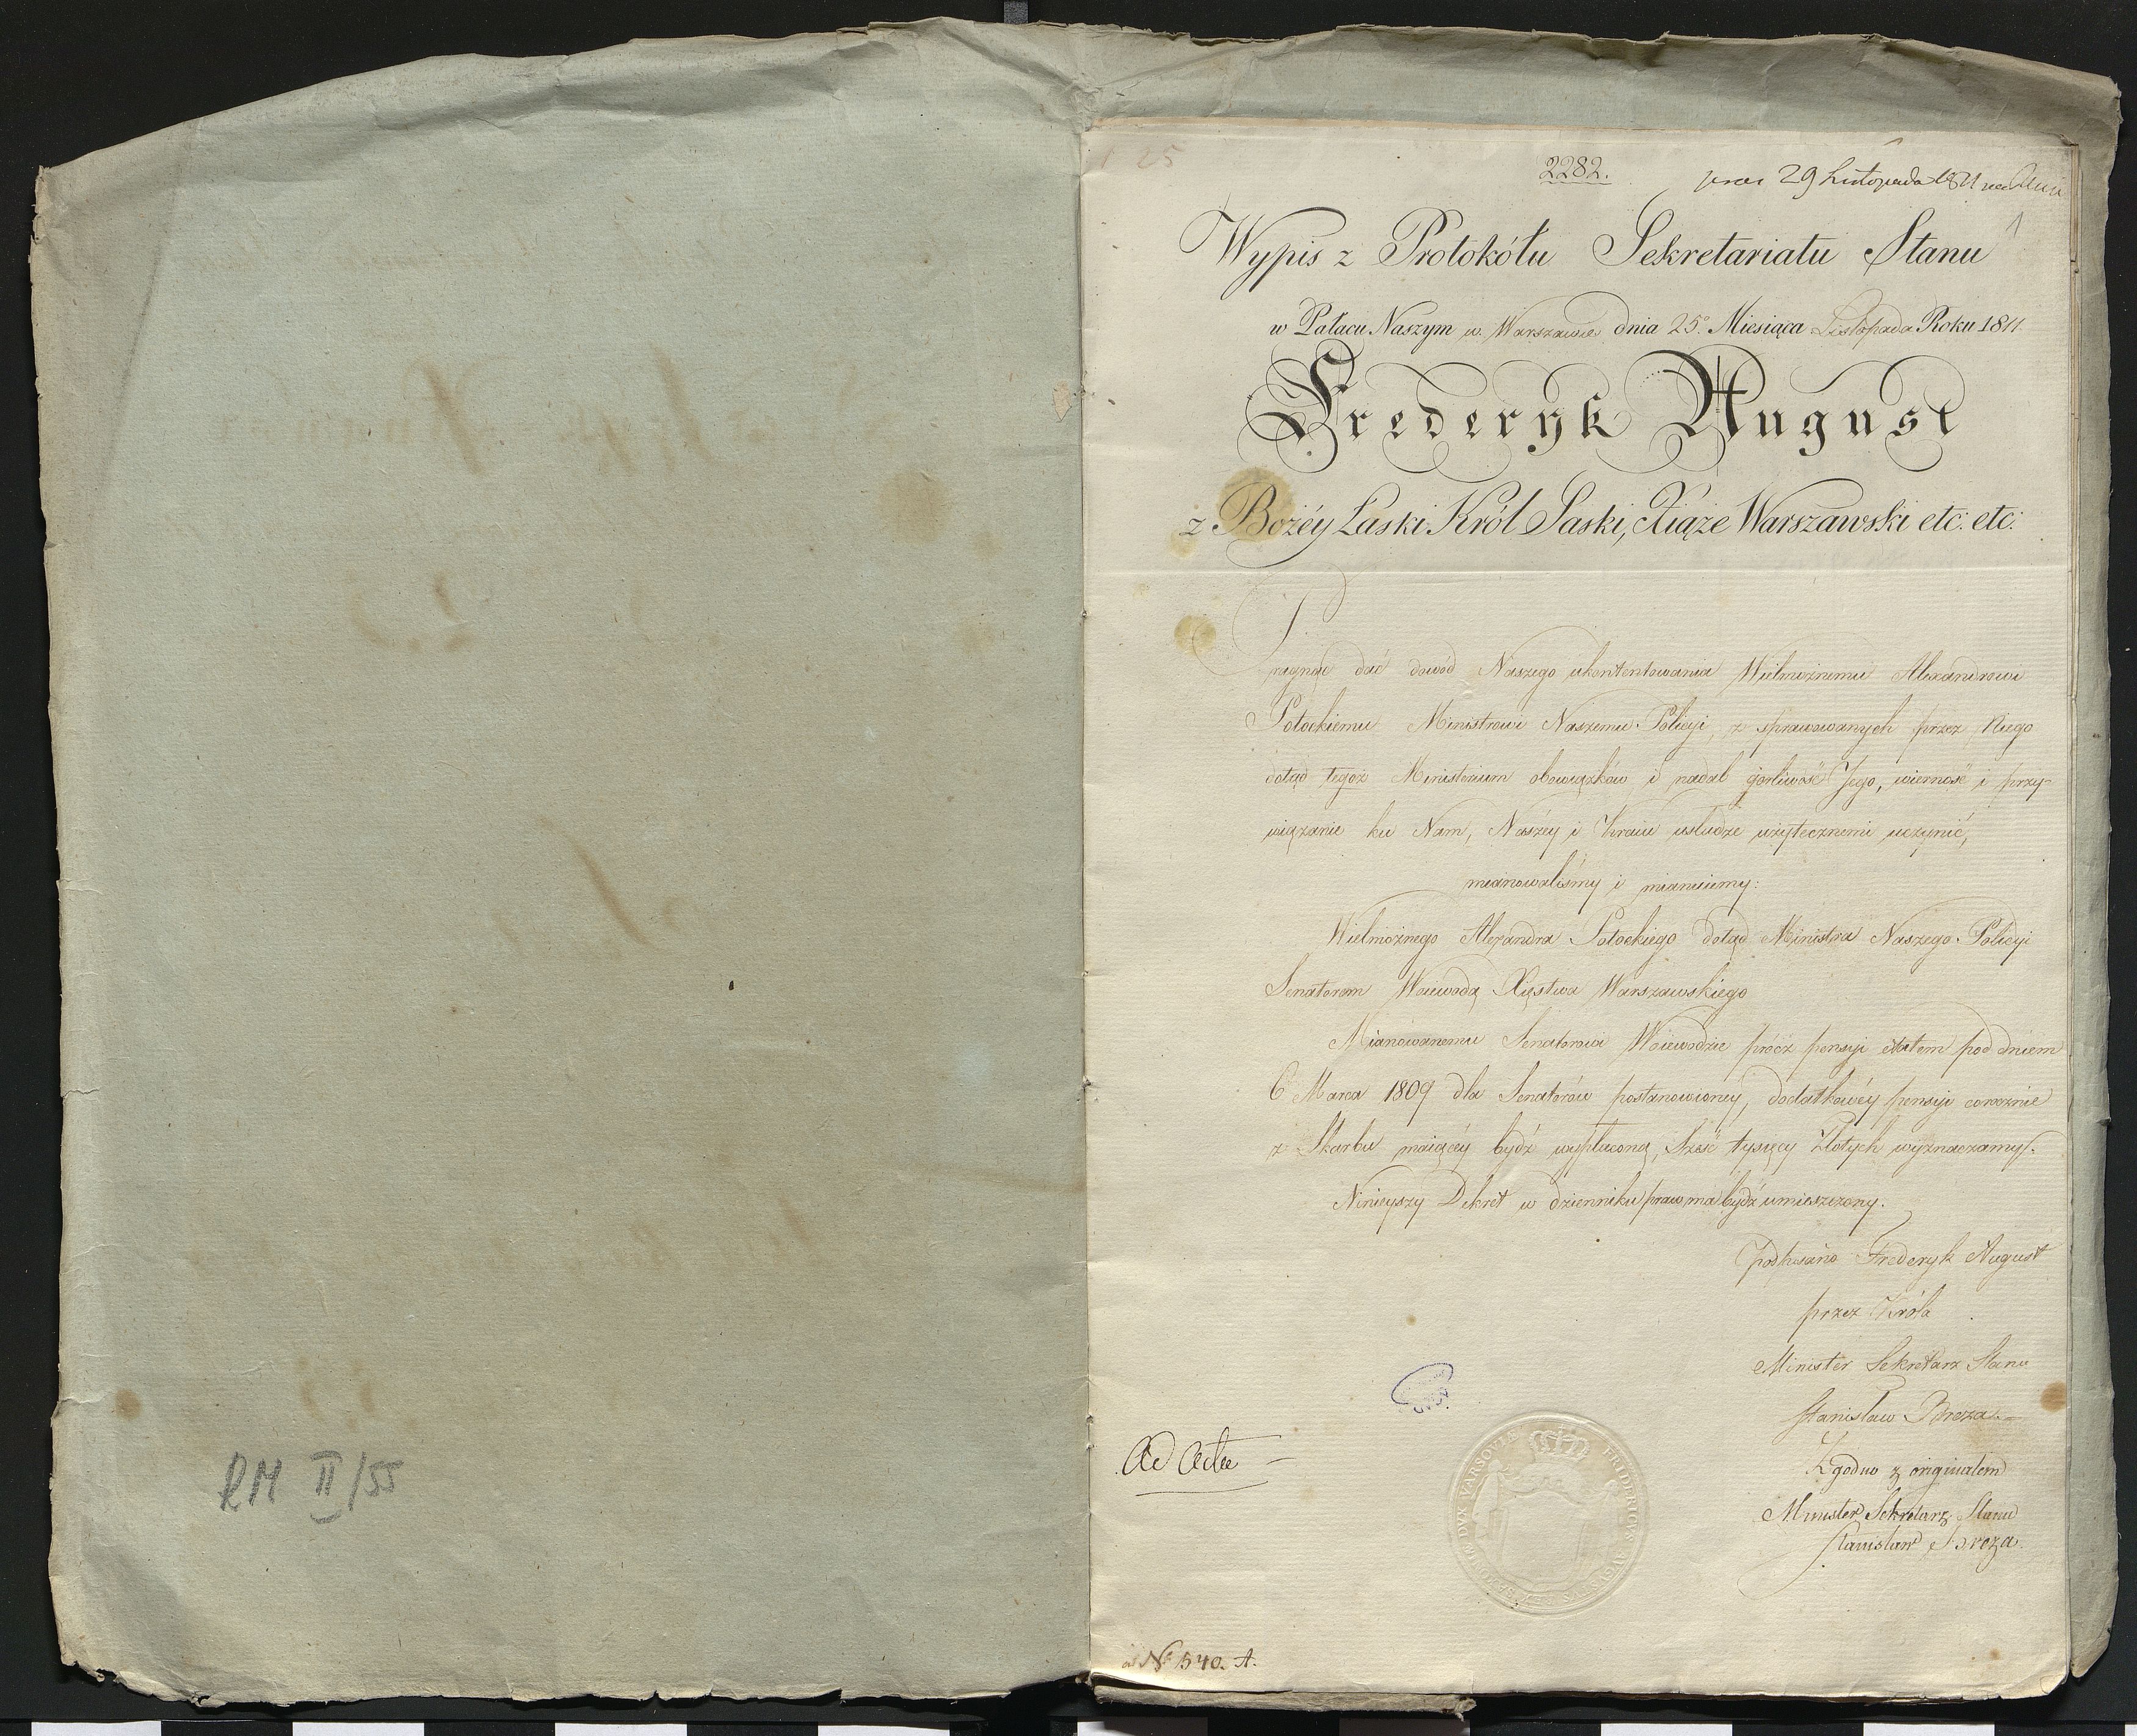 RM II/55
25
2282.
29 Listopada 1811
1
Wypis z Protokółu Sekretariatu Stanu
w Pałacu Naszym w Warszawie dnia 25º Miesiąca Listopada Roku 1811
Frederyk August
z Bożéy Łaski Król Saski, Xiąże Warszawski etc: etc:
Pragnąc dać dowód Naszego ukontentowania Wielmożnemu Alexandrowi
Potockiemu Ministrowi Naszemu Policyi, z sprawowanych przez Niego
dotąd tegoż Ministerium obowiązków, i nadal gorliwość Jego, wierność i przy-
wiązanie ku Nam, Naszéy i Kraiu usłudze użytecznemi uczynić,
mianowaliśmy i mianuiemy:
Wielmożnego Alexandra Potockiego dotąd Ministra Naszego Policyi
Senatorem Woiewodą Xięstwa Warszawskiego
Mianowanemu Senatorowi Woiewodzie prócz pensyi etatem pod dniem
6 Marca 1809 dla Senatorów postanowioney, dodatkowéy pensyi corocznie
z Skarbu maiącéy bydź wypłaconą, Sześć tysięcy Złotych wyznaczamy.
Ninieyszy Dekret w dzienniku praw ma bydź umieszczony.
podpisano Frederyk August
przez Króla
Minister Sekretarz Stanu
Stanisław Breza
Zgodno z originałem
Minister Sekretarz Stanu
Stanisław Breza
Ad Acta
FRIDERICUS AUGUSTUS REX SAXONIAE DVX VARSOVIAE
ad Nº 540. A.